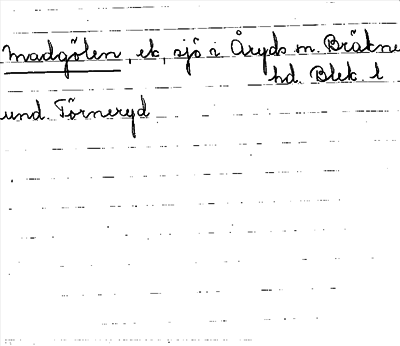 Madgölen, ek, sjö i Åryds m. Bräkne
hd. Blek. l
und. Törneryd